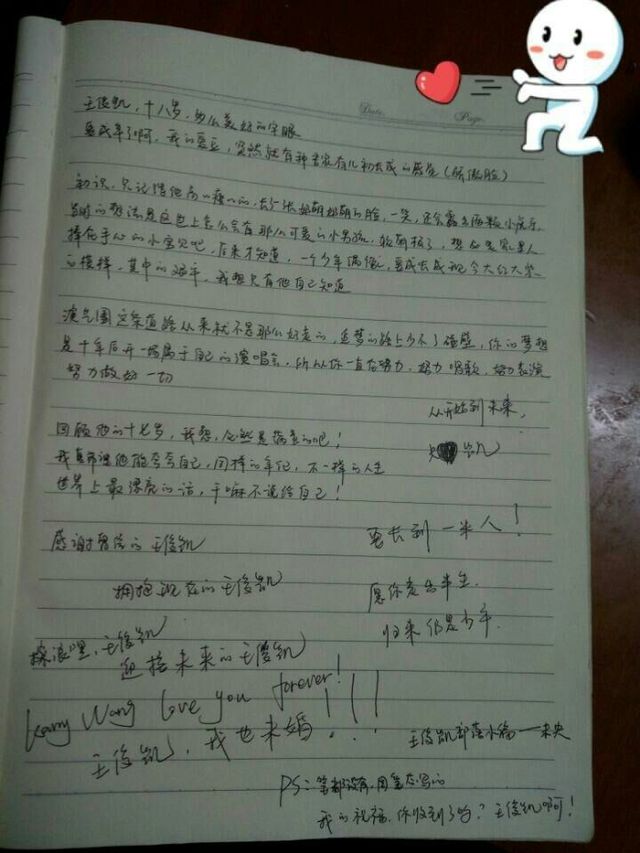 Date.          Page.
王俊凯,十八岁,多么美好的字眼
要成年了啊,我的爱豆,突然就有种吾家有儿初长成的感觉(骄傲脸)
初识,只记得他
的脸,一笑,还会露出两颗小虎牙
当时的想法是这世上怎么会有那么可爱的小男孩,
捧在手心的小宝贝吧,后来才知道,一个少年偶像,要成长成现今大红大紫
的模样,其中的艰辛,我想只有他自己知道
演艺圈这条道路从来就不是那么好走的,追梦的路上少不了
你的梦想
是十年后开一场属于自己的演唱会,所以你一直在努力,努力唱歌,努力表演
努力做好一切
从开始到未来,
凯
回顾他的十七岁,我想,必然是
的吧!
我真希望他能夸夸自己,同样的年纪,不一样的人生
世界上最漂亮的话,干嘛不说给自己!
要长到一米八!
感谢曾经的王俊凯
拥抱现在的王俊凯
愿你走出半生,
归来仍是少年.
操浪嘿,王俊凯
迎接未来的王俊凯
Karry Wang love you forever!
王俊凯,我也未婚!!!
王俊凯部落小编——未央
PS:
我的祝福,你收到了吗?王俊凯啊!